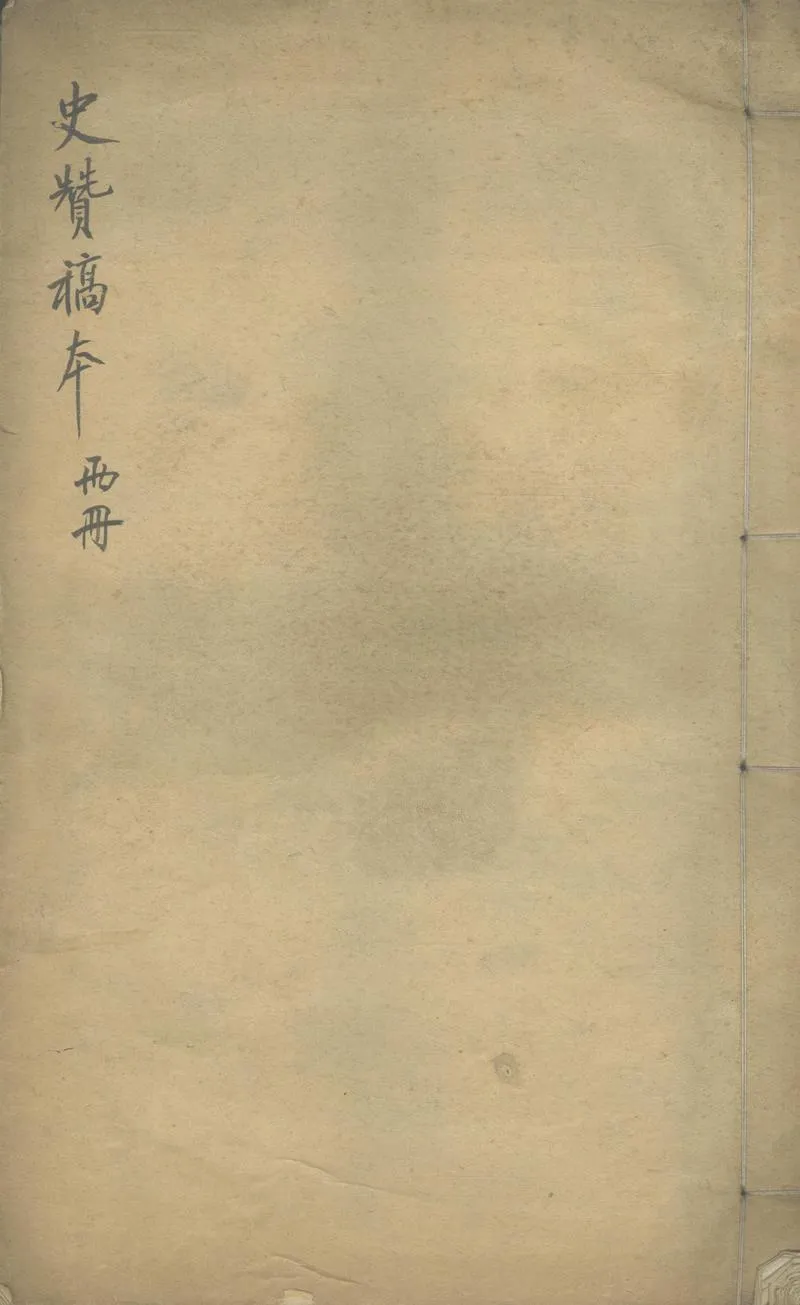 史贊稿本
两冊